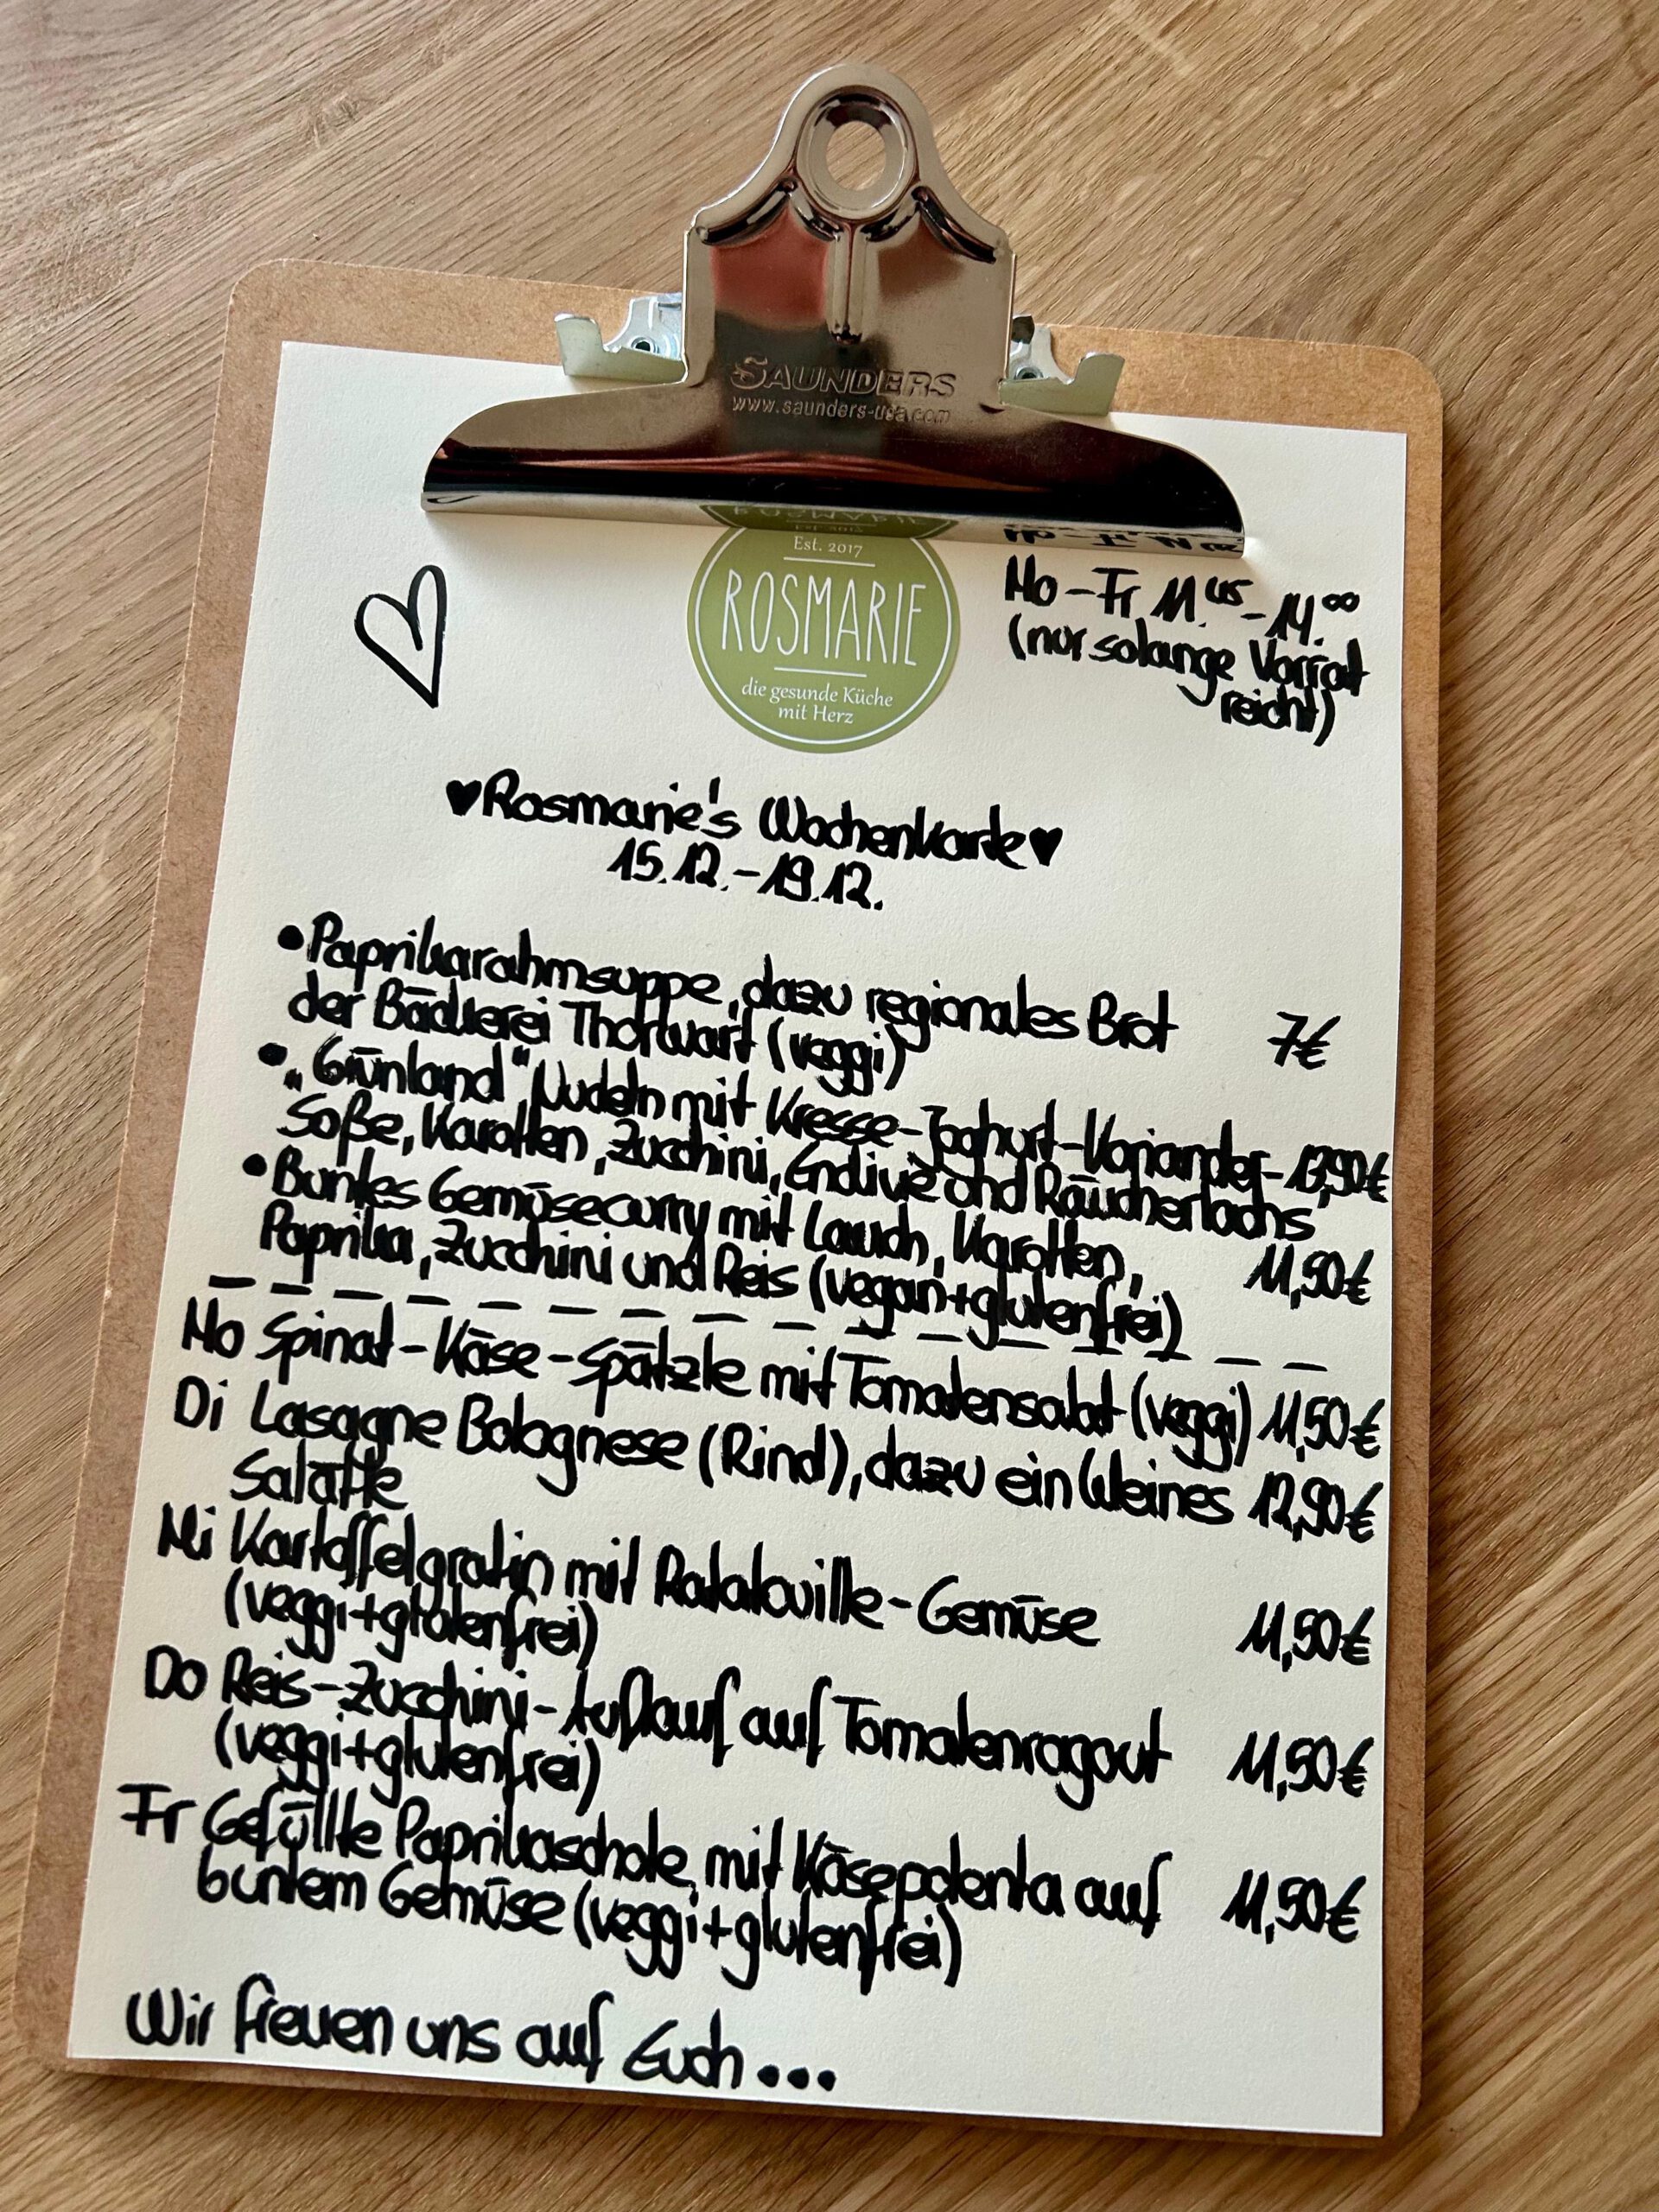 SAUNDERS
www.saunders-usa.com
Est. 2017
ROSMARIE
die gesunde Küche
mit Herz
Mo-Fr 11.45-14.00
(nur solange Vorrat
reicht)
♥Rosmarie's Wochenkarte♥
15.12.-19.12.
•Paprikarahmsuppe, dazu regionales Brot
der Bäckerei Thorwart (veggi) 7€
•„Grünland“ Nudeln mit Kresse-Joghurt-Koriander- 13,90€
Soße, Karotten, Zucchini, Endivie und Räucherlachs
•Buntes Gemüsecurry mit Lauch, Karotten, 11,50€
Paprika, Zucchini und Reis (vegan+glutenfrei)
Mo Spinat-Käse-Spätzle mit Tomatensalat (veggi) 11,50€
Di Lasagne Bolognese (Rind), dazu ein kleines 12,90€
Salätle
Mi Kartoffelgratin mit Ratatouille-Gemüse 11,50€
(veggi+glutenfrei)
Do Reis-Zucchini-Auflauf auf Tomatenragout 11,50€
(veggi+glutenfrei)
Fr Gefüllte Paprikaschote, mit Käsepolenta auf 11,50€
buntem Gemüse (veggi+glutenfrei)
Wir freuen uns auf Euch...